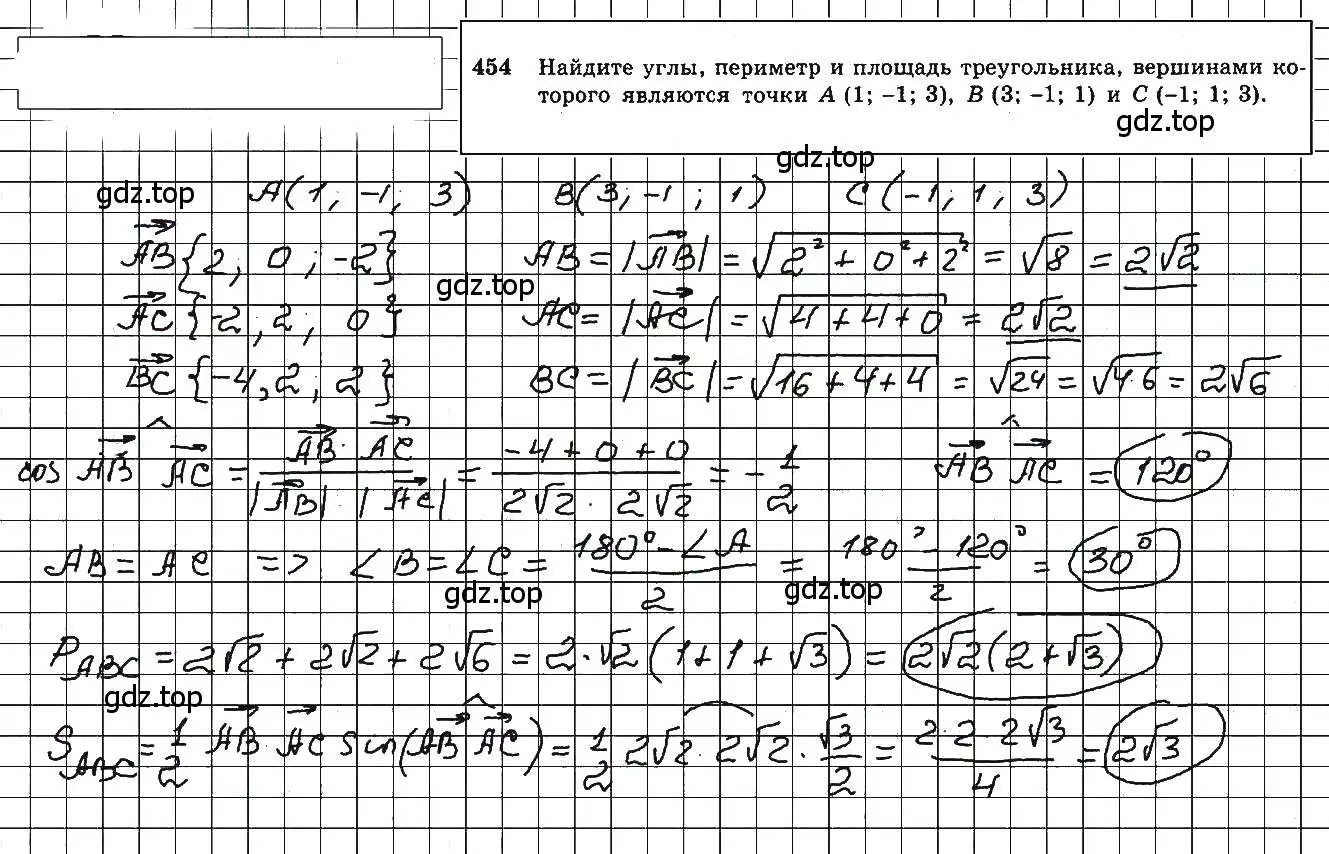 454 Найдите углы, периметр и площадь треугольника, вершинами ко-
торого являются точки A (1; -1; 3), B (3; -1; 1) и C (-1; 1; 3).
gdz.top
gdz.top
gdz.top A(1; -1; 3) B(3; -1; 1) C(-1; 1; 3)
AB{2; 0; -2} AB = |AB| = √2²+0²+2² = √8 = 2√2
gdz.top
AC{-2, 2, 0} AC = |AC| = √4+4+0 = 2√2
BC{-4, 2; 2} BC = |BC| = √16+4+4 = √24 = √4·6 = 2√6
cos AB^AC = AB·AC / |AB| |AC| = -4+0+0 / 2√2·2√2 = -1/2 AB^AC = 120°
AB = AC => ∠B = ∠C = 180°-∠A / 2 = 180°-120° / 2 = 30°
gdz.top gdz.top
P_ABC = 2√2 + 2√2 + 2√6 = 2·√2(1+1+√3) = 2√2(2+√3)
gdz.top
S_ABC = 1/2 AB·AC Sin(AB^AC) = 1/2 2√2·2√2·√3/2 = 2·2·2√3 / 4 = 2√3